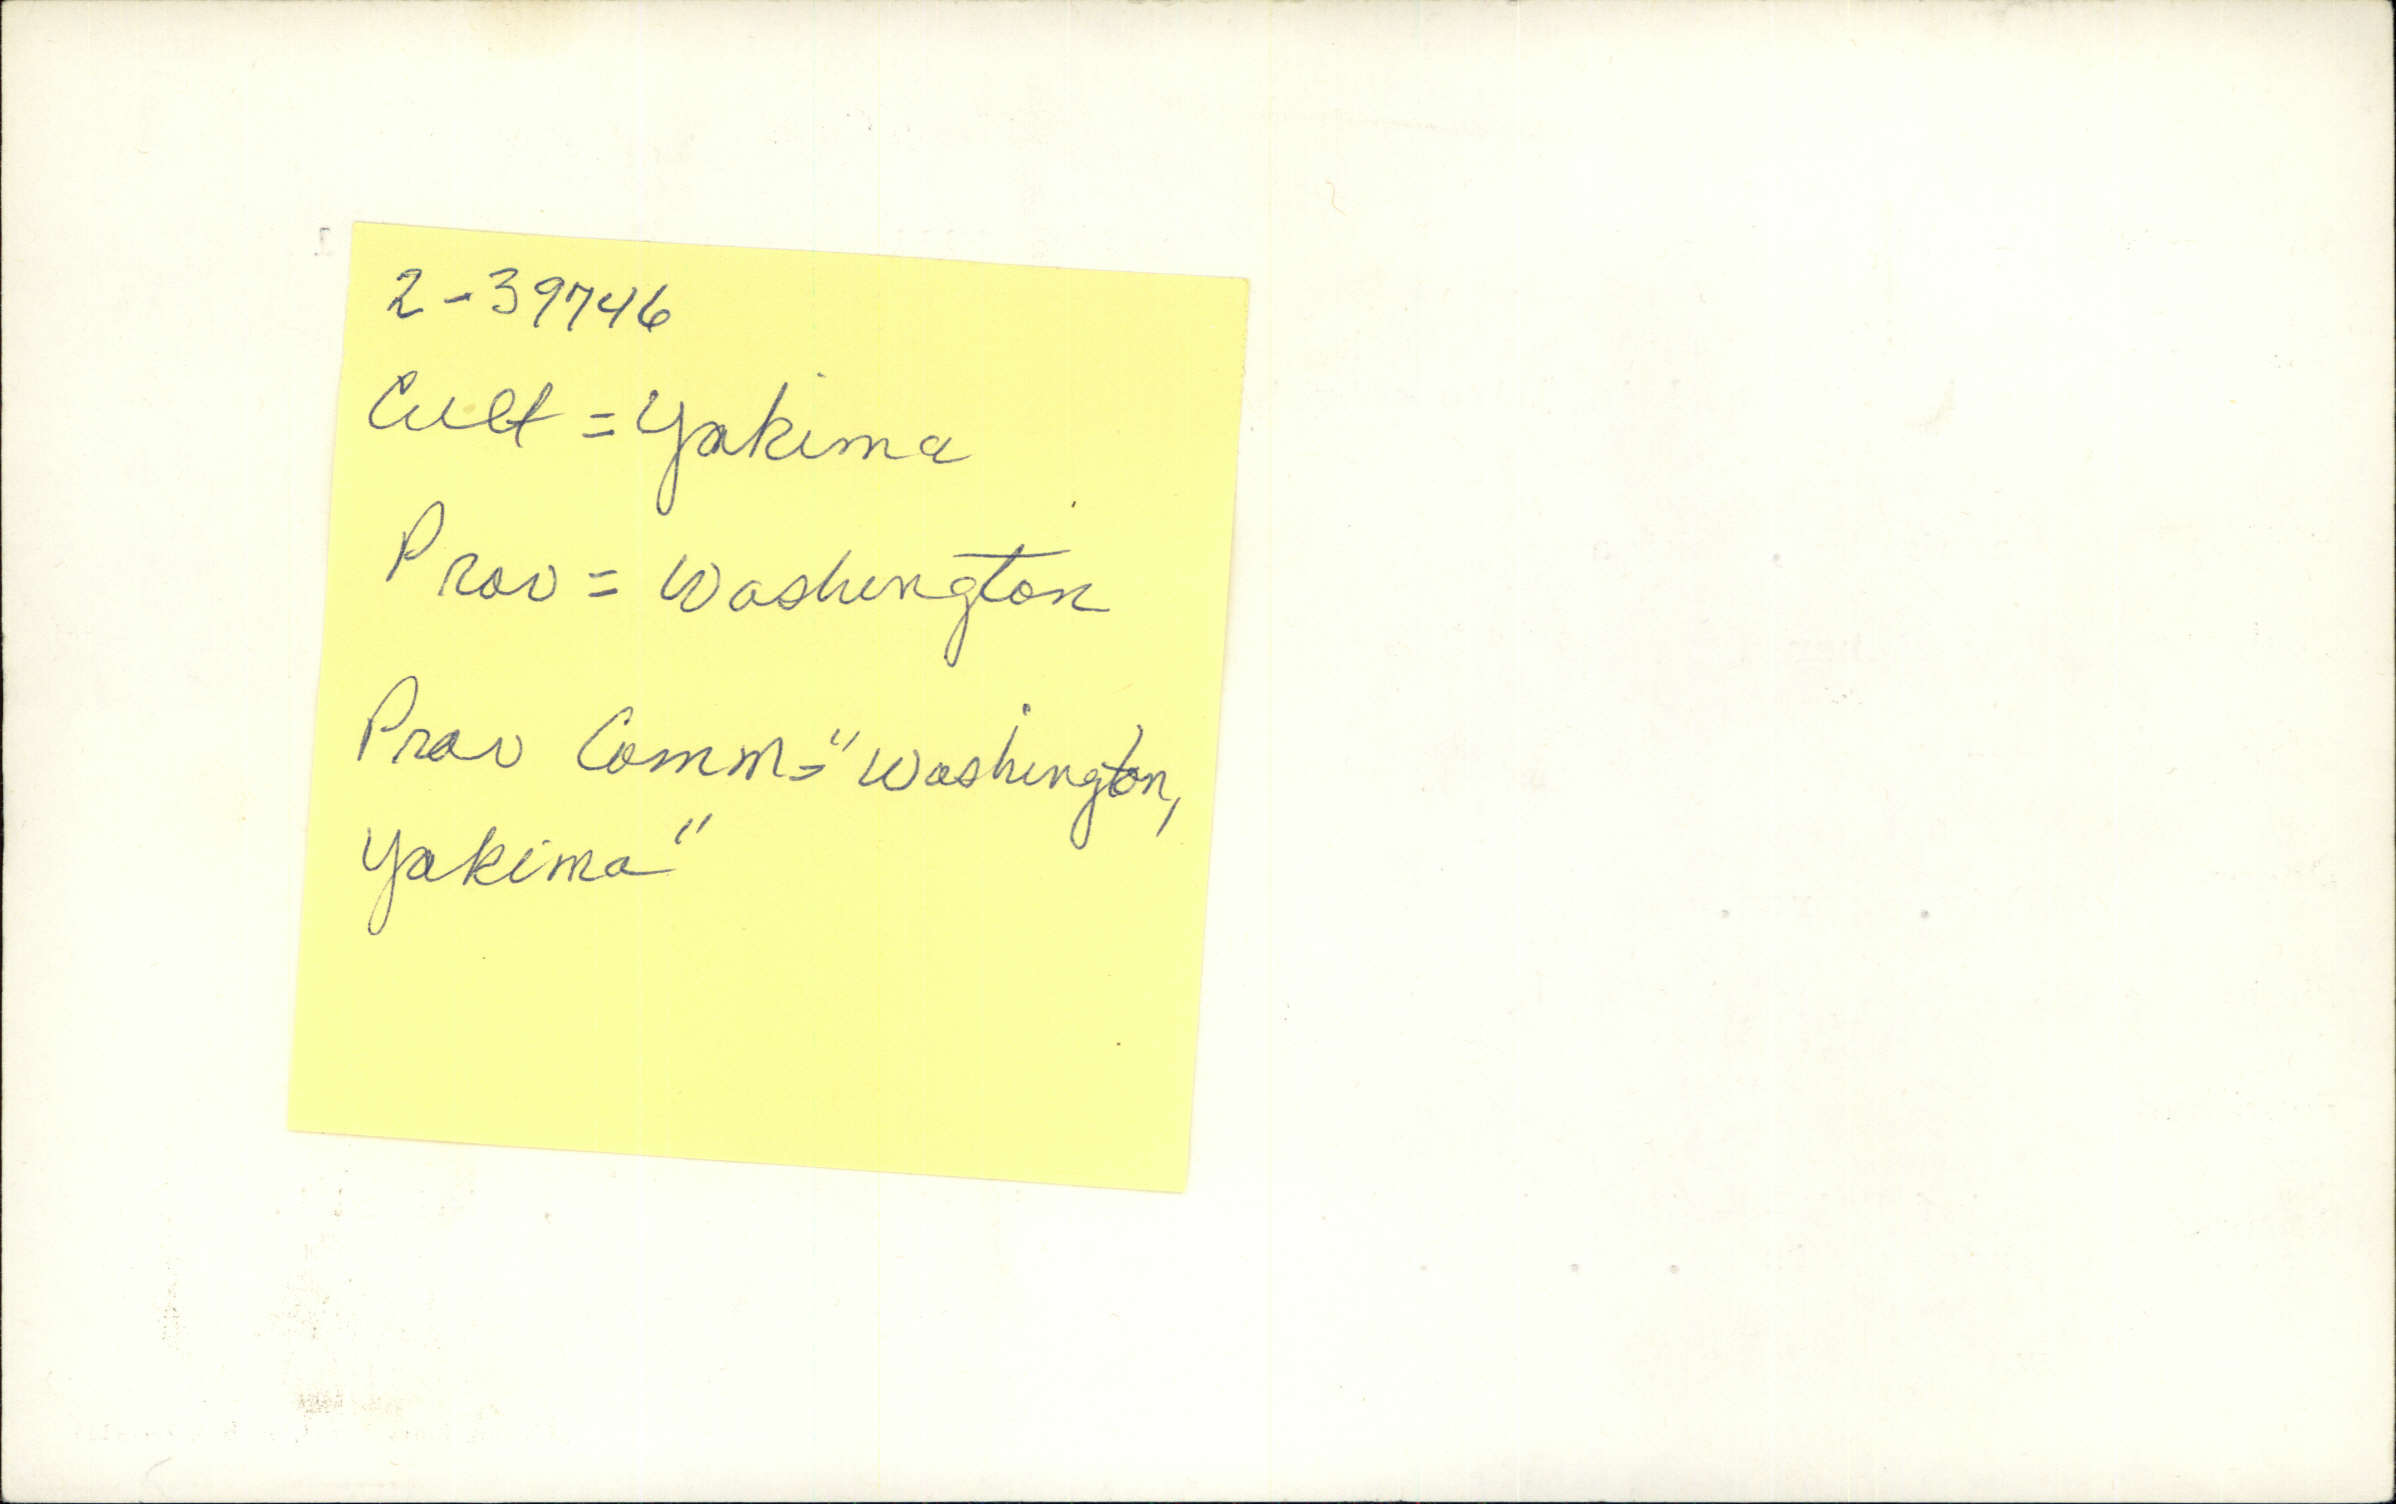 2-39746
Cult = Yakima
Prov = Washington
Prov Comm = "Washington,
Yakima"